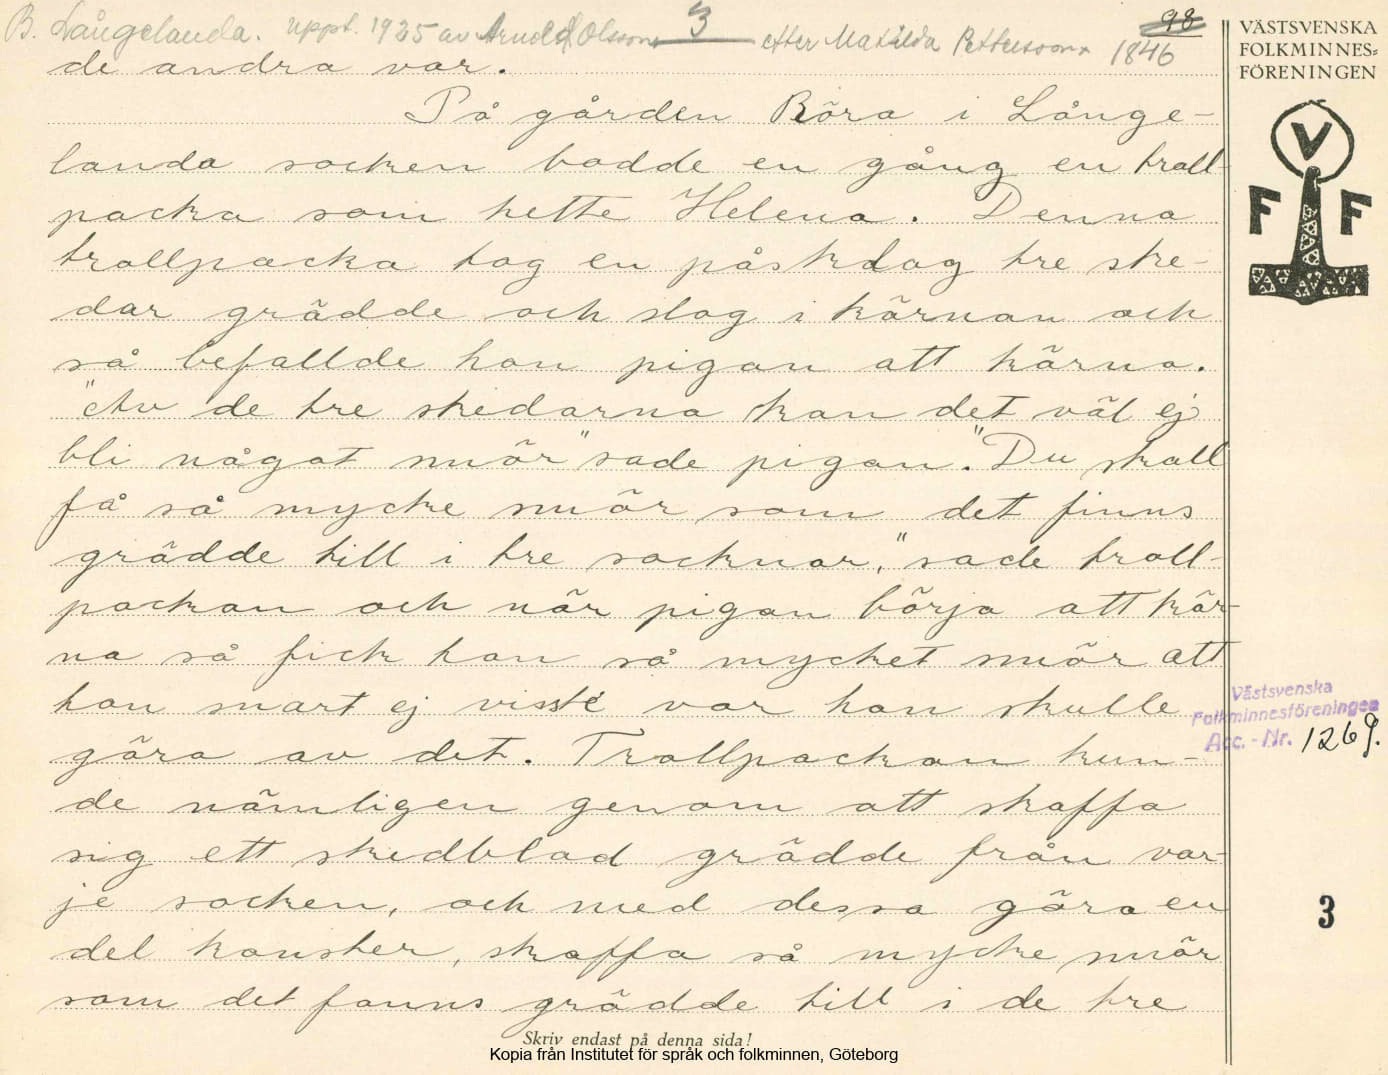 B. Långelanda. Uppt. 1925 av Arnold Olsson 3 efter Matilda Pettersson 1846
98
de andra var.
På gården Röra i Långe-
landa socken bodde en gång en troll-
packa som hette Helena. Denna
trollpacka tog en påskdag tre ske-
dar grädde och slog i kärnan och
så befallde hon pigan att kärna.
"Av de tre skedarna kan det väl ej
bli något smör" sade pigan. "Du skall
få så mycke smör som det finns
grädde till i tre socknar," sade troll-
packan och när pigan börja att kär-
na så fick hon så mycket smör att
hon snart ej visste var hon skulle
göra av det. Trollpackan kun-
de nämligen genom att skaffa
sig ett skedblad grädde från var-
je socken, och med dessa göra en
del konster, skaffa så mycke smör
som det fanns grädde till i de tre
Skriv endast på denna sida!
Kopia från Institutet för språk och folkminnen, Göteborg
VÄSTSVENSKA
FOLKMINNES-
FÖRENINGEN
V
F F
Västsvenska
Folkminnesföreningen
Acc. - Nr. 1269.
3